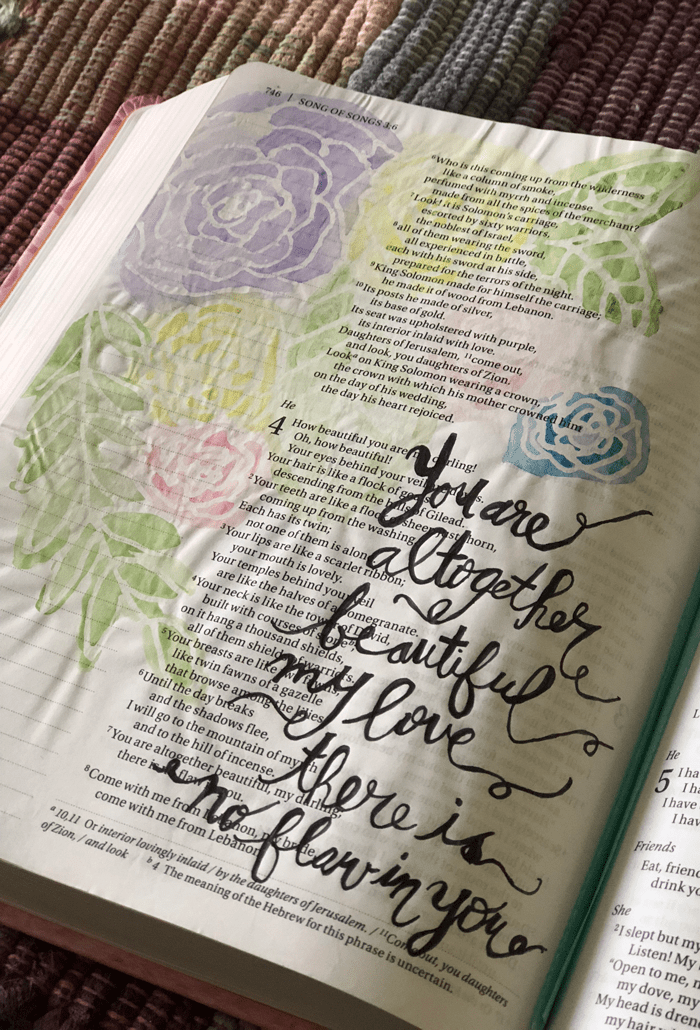 746 | SONG OF SONGS 3:6
⁶Who is this coming up from the wilderness
like a column of smoke,
perfumed with myrrh and incense
made from all the spices of the merchant?
⁷Look! It is Solomon's carriage,
escorted by sixty warriors,
the noblest of Israel,
⁸all of them wearing the sword,
all experienced in battle,
each with his sword at his side,
prepared for the terrors of the night.
⁹King Solomon made for himself the carriage;
he made it of wood from Lebanon.
¹⁰Its posts he made of silver,
its base of gold.
Its seat was upholstered with purple,
its interior inlaid with love.
Daughters of Jerusalem, ¹¹come out,
and look, you daughters of Zion.
Lookᵃ on King Solomon wearing a crown,
the crown with which his mother crowned him
on the day of his wedding,
the day his heart rejoiced.
He
4 How beautiful you are darling!
Oh, how beautiful!
Your eyes behind your veil
Your hair is like a flock of goats
descending from the hills of Gilead.
²Your teeth are like a flock sheep just shorn,
coming up from the washing.
Each has its twin;
not one of them is alone.
³Your lips are like a scarlet ribbon;
your mouth is lovely.
Your temples behind your veil
are like the halves of a pomegranate.
⁴Your neck is like the tower of David,
built with courses stone
on it hang a thousand shields,
all of them shields of warriors.
⁵Your breasts are like
like twin fawns of a gazelle
that browse among the lilies.
⁶Until the day breaks
and the shadows flee,
I will go to the mountain of myrrh
and to the hill of incense.
⁷You are altogether beautiful, my darling;
there is flaw you.
⁸Come with me from Lebanon, my bride,
come with me from Lebanon
ᵃ 10,11 Or interior lovingly inlaid / by the daughters of Jerusalem. / ¹¹Come out, you daughters
of Zion, / and look ᵇ 4 The meaning of the Hebrew for this phrase is uncertain.
You are
altogether
beautiful
my love
there is
no flaw in you
He
5 I ha
I h
I have
I hav
Friends
Eat, friend
drink yo
She
²I slept but my
Listen! My
"Open to me, m
my dove, my
My head is dren
my hair